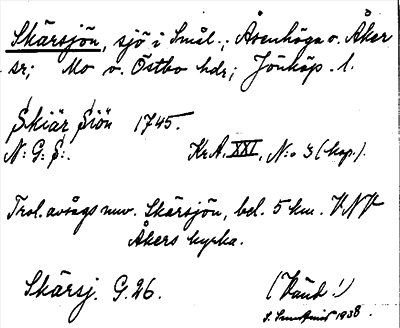 Skärsjön, sjö i Smål.; Åsenhöga o. Åker
sr; Mo o. Östbo hdr; Jönköp. l.
Skiär Siön 1745.
N: G: S:. Kr.A. XXI, N:o 3 (kop.).
Trol. avsågs nuv. Skärsjön, bel. 5 km. VNV
Åkers kyrka.
Skärsj. G. 26. (Vänd!)
1938.